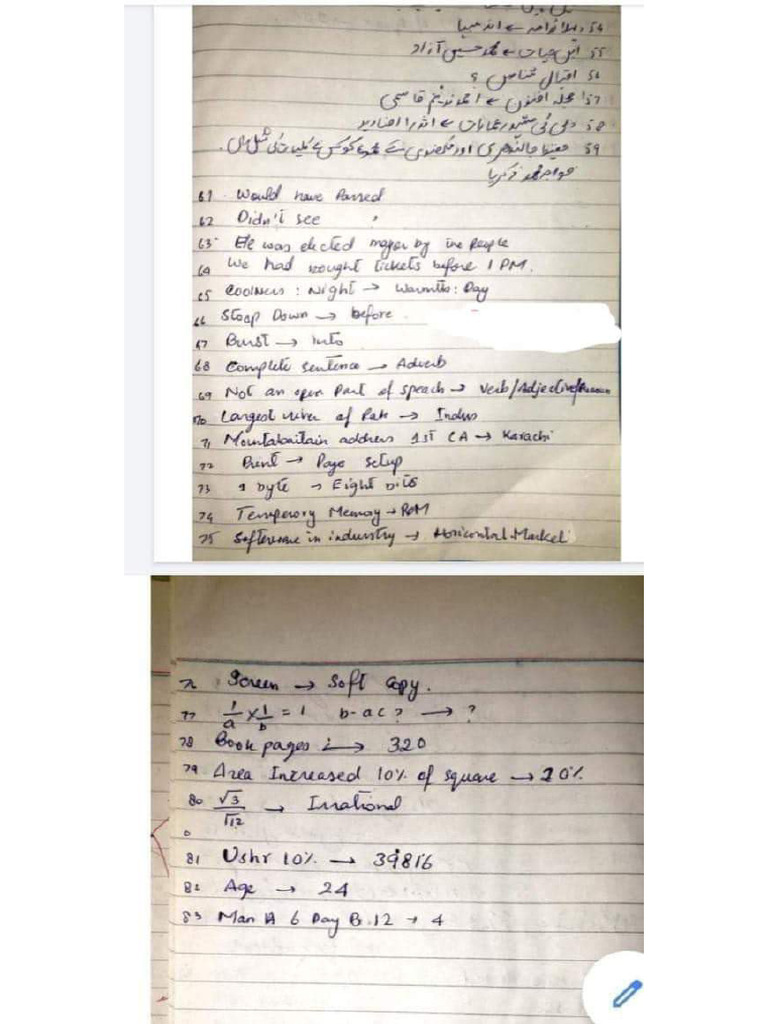 54 پہلا ڈرامہ ے اندر سبھا
55 آب حیات ے محمد حسین آزاد
56 اقبال شناسی ؟
57 مجلہ افنون ے احمد ندیم قاسمی
58 دہلی کی مشہور عمارات ے
59 حفیظ جالندھری اور
خواجہ محمد زکریا
61 Would have Passed
62 Didn't see
63 He was elected mayor by the People
64 We had bought tickets before 1 PM.
65 Coolness : Night → Warmth : Day
66 Stoop Down → before
67 Burst → Into
68 Complete sentence → Adverb
69 Not an open Part of speach → Verb/Adjective/
70 Largest river of Pak → Indus
71 Mountabaitain address 1st CA → Karachi
72 Print → Page setup
73 1 byte → Eight bits
74 Temperory Memory →
75 in industry → Horicontal Market
76 Screen → Soft Copy.
77 1/a × 1/b = 1 b-ac? → ?
78 Book pages → 320
79 Area Increased 10% of square →
80 √3/√12 → Irrational
81 Ushr 10% → 39816
82 Age → 24
83 Man A 6 Day B 12 → 4